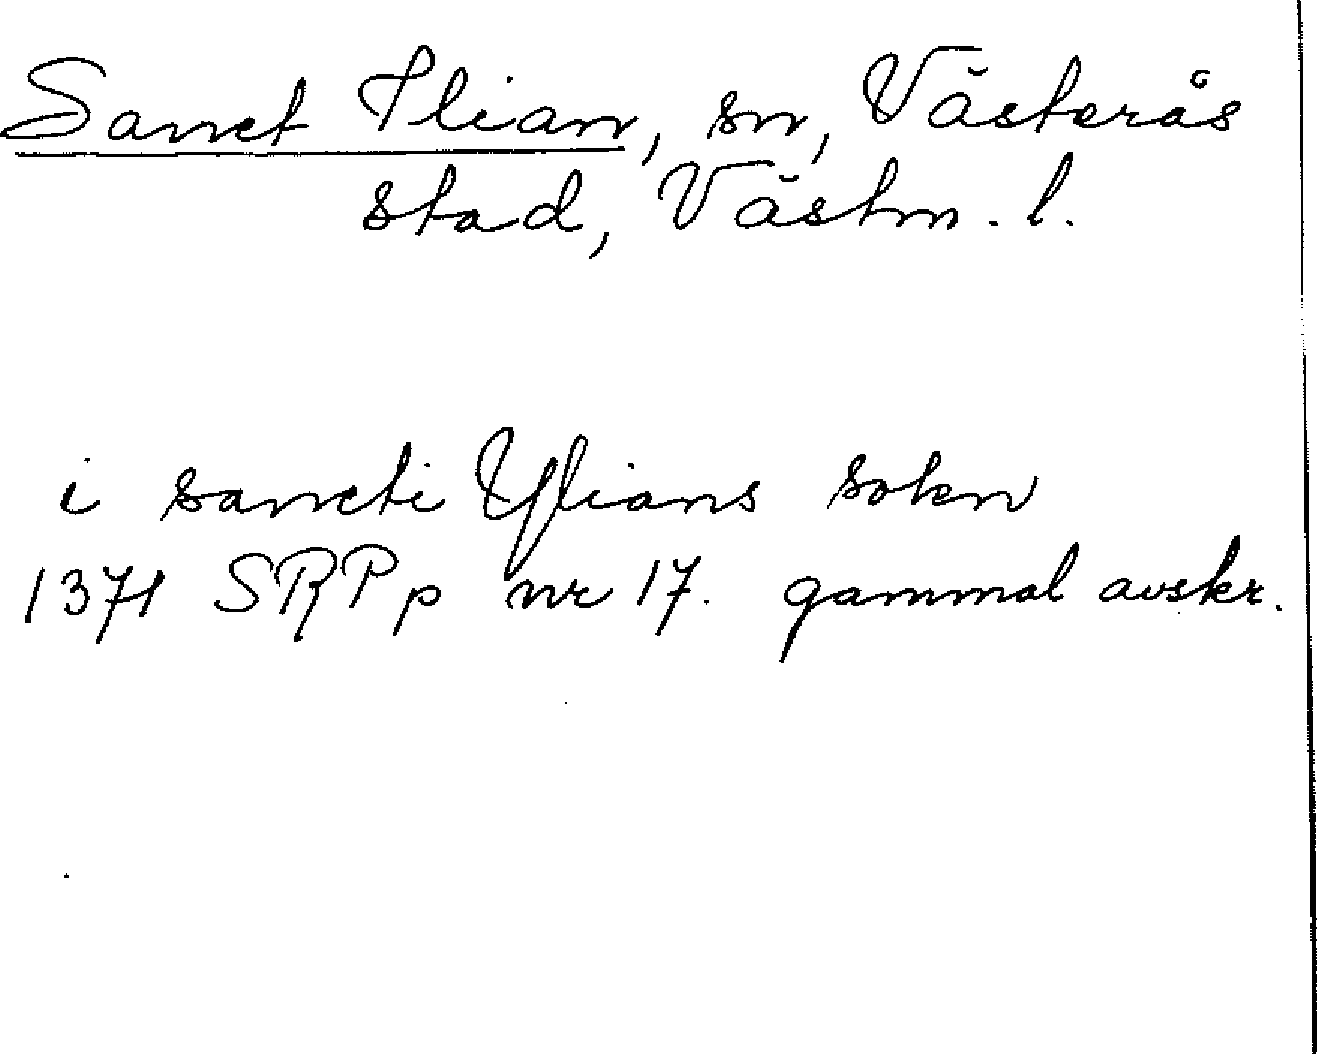 Sanct Ilian, sn, Västerås
stad, Västm. l.
i sancti Ylians sokn
1371 SRPp nr 17. gammal avskr.